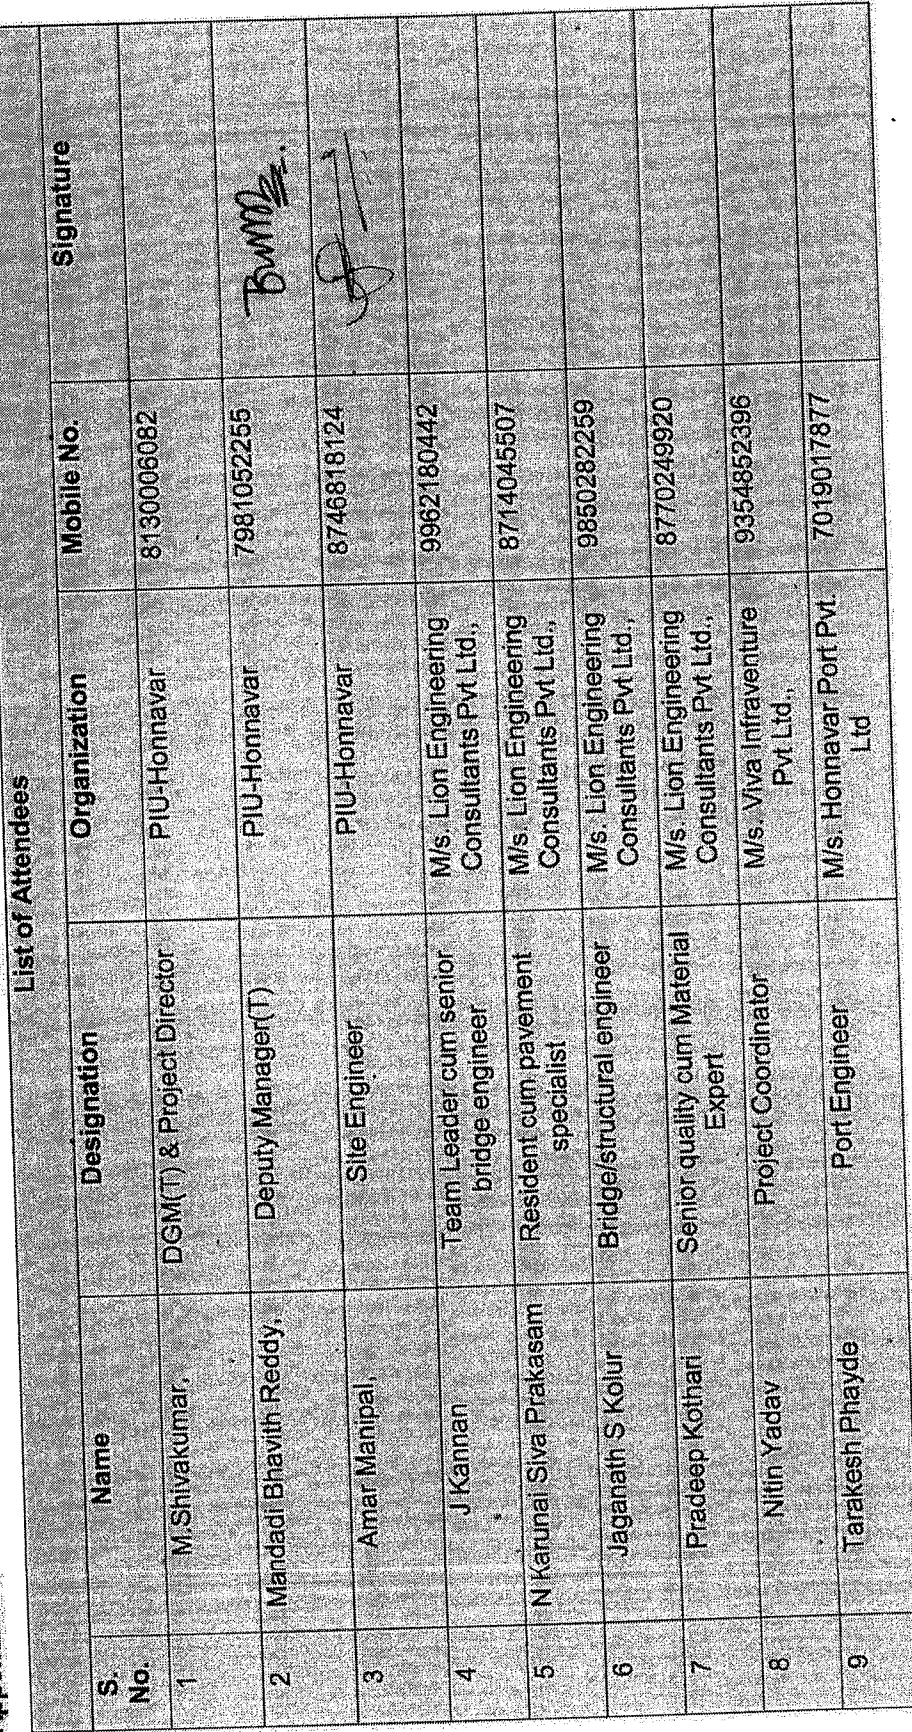 List of Attendees
S. No. Name Designation Organization Mobile No. Signature
1 M.Shivakumar, DGM(T) & Project Director PIU-Honnavar 8130006082
2 Mandadi Bhavith Reddy, Deputy Manager(T) PIU-Honnavar 7981052255
3 Amar Manipal, Site Engineer PIU-Honnavar 8746818124
4 J Kannan Team Leader cum senior bridge engineer M/s. Lion Engineering Consultants Pvt Ltd., 9962180442
5 N Karunai Siva Prakasam Resident cum pavement specialist M/s. Lion Engineering Consultants Pvt Ltd., 8714045507
6 Jaganath S Kolur Bridge/structural engineer M/s. Lion Engineering Consultants Pvt Ltd., 9850282259
7 Pradeep Kothari Senior quality cum Material Expert M/s. Lion Engineering Consultants Pvt Ltd., 8770249920
8 Nitin Yadav Project Coordinator M/s. Viva Infraventure Pvt Ltd., 9354852396
9 Tarakesh Phayde Port Engineer M/s. Honnavar Port Pvt. Ltd 7019017877